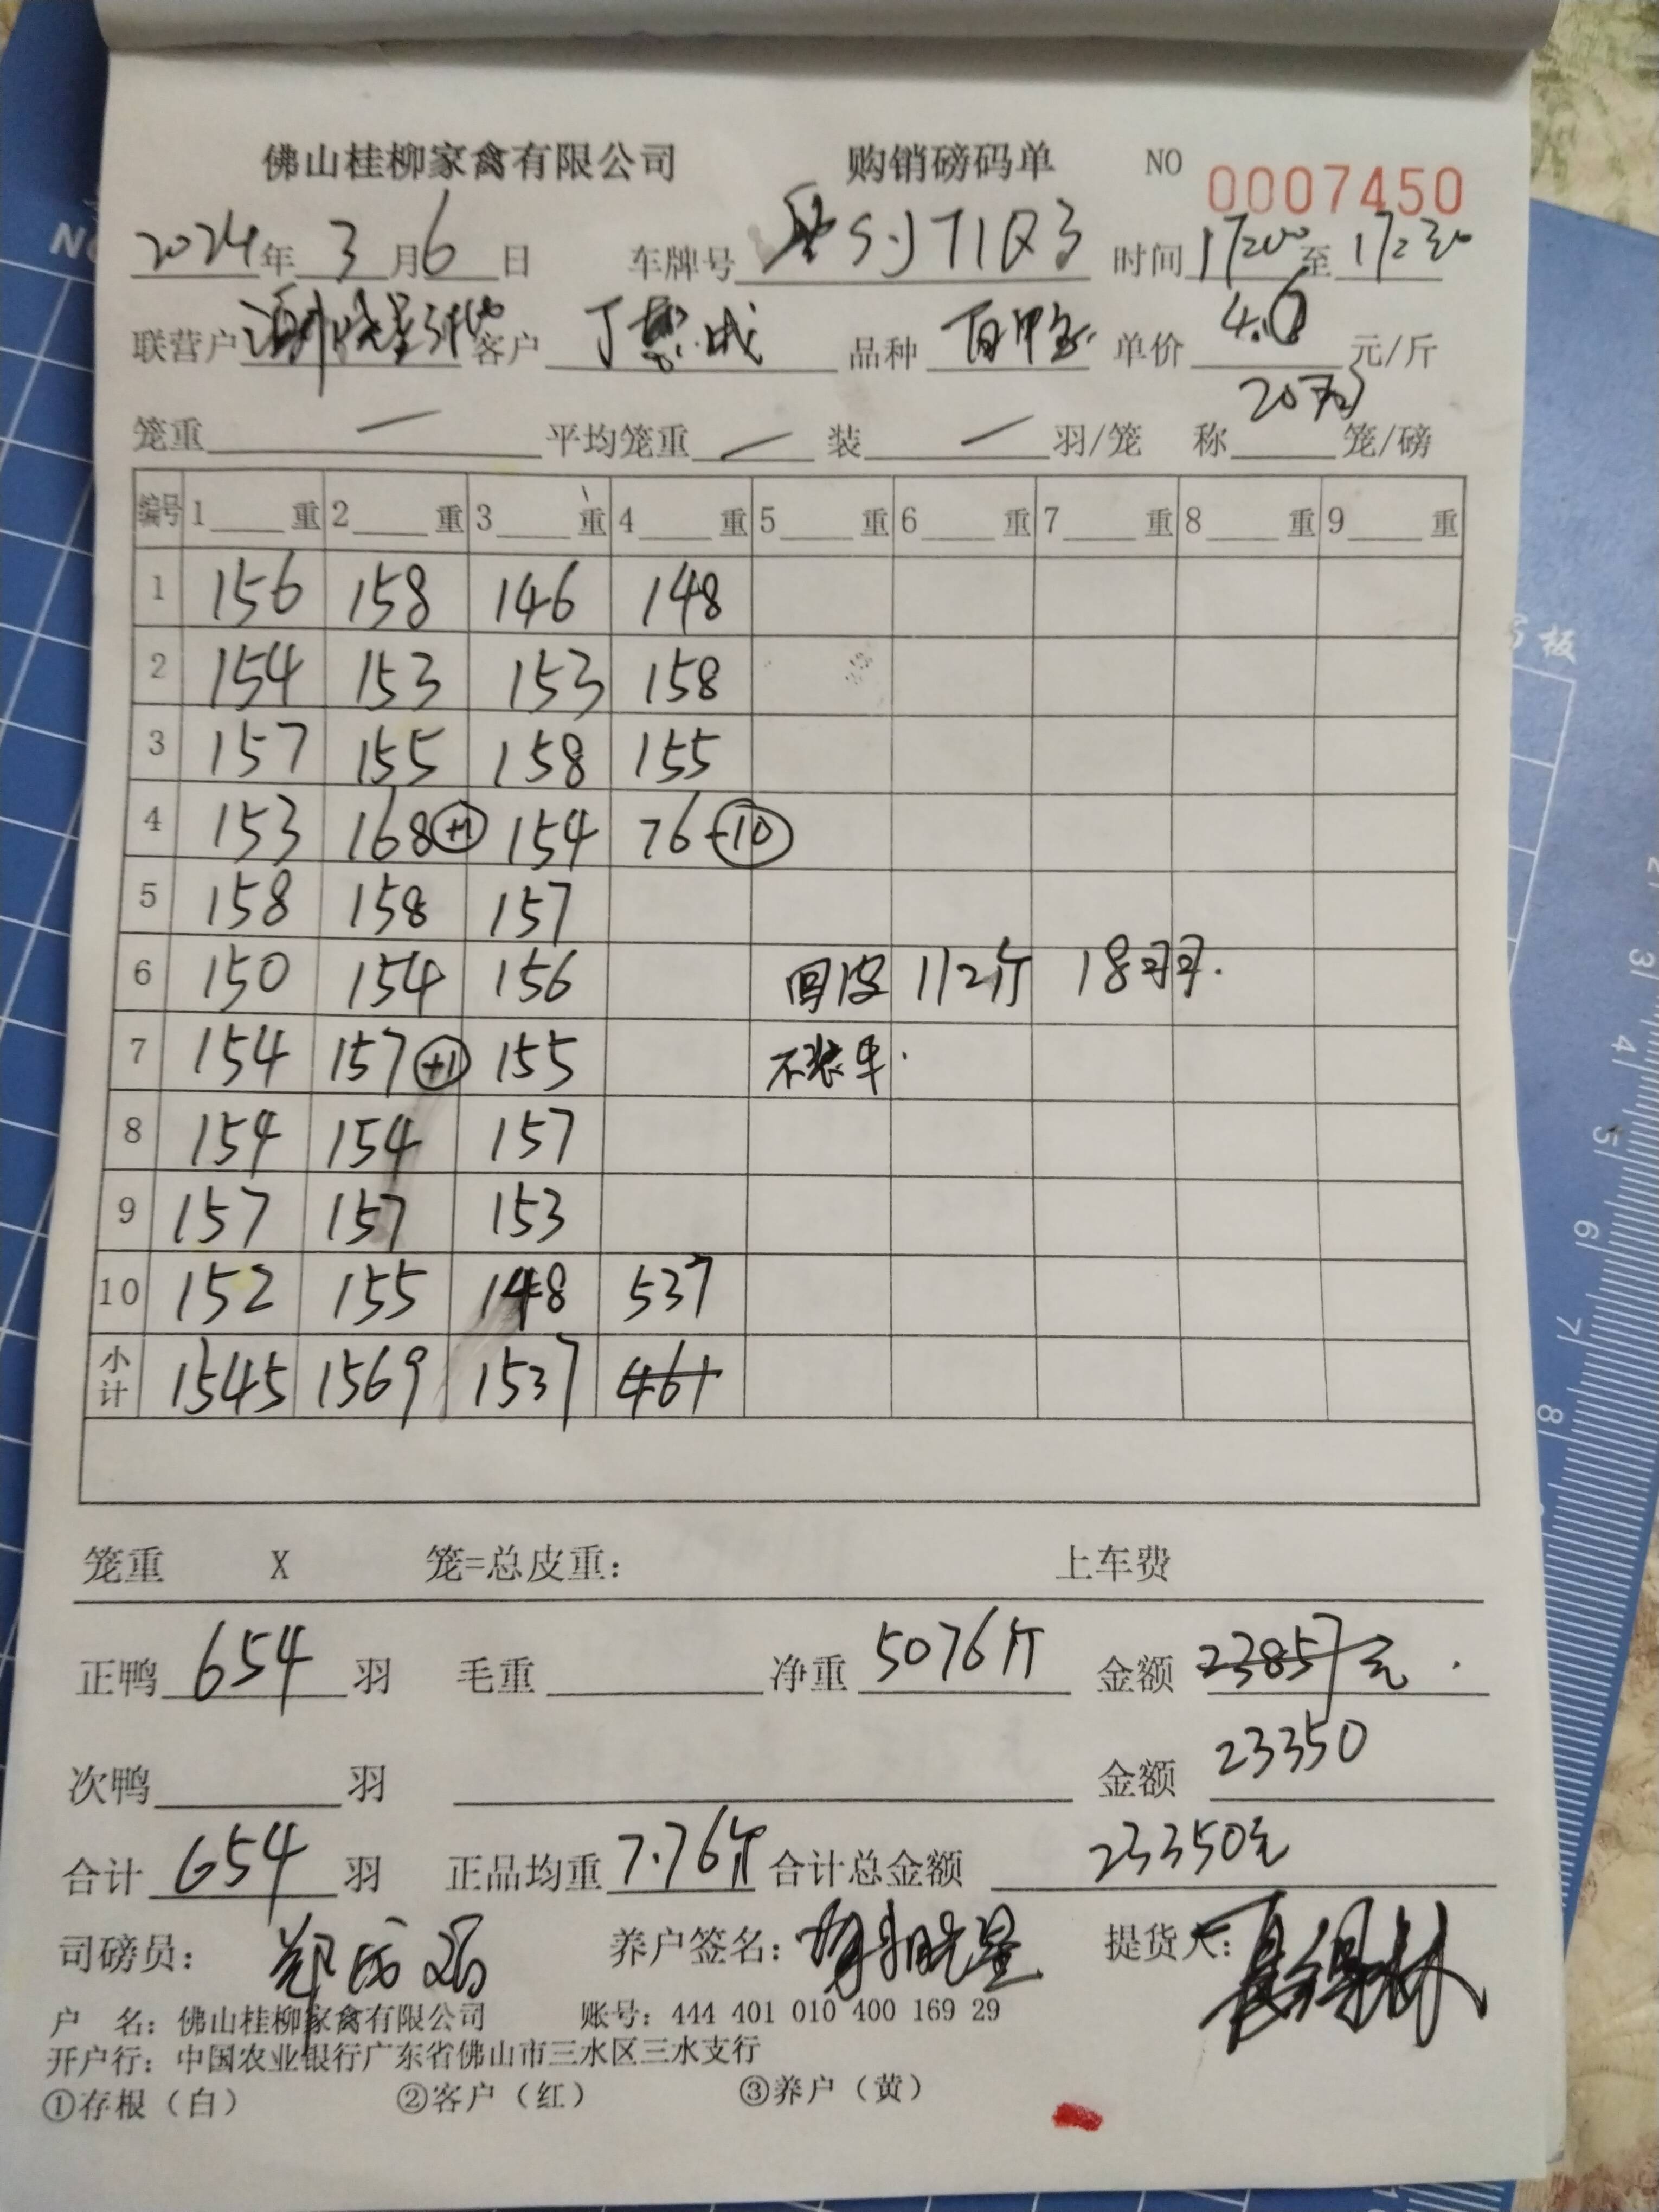 佛山桂柳家禽有限公司 购销磅码单 NO 0007450
2024年 3 月 6 日 车牌号 时间 17:00 至 17:30
联营户 客户 丁 成 品种 单价 4.6 元/斤
20羽
笼重 — 平均笼重 — 装 — 羽/笼 称 笼/磅
编号 1 重 2 重 3 重 4 重 5 重 6 重 7 重 8 重 9 重
1 156 158 146 148
2 154 153 153 158
3 157 155 158 155
4 153 168 +1 154 76 -10
5 158 158 157
6 150 154 156 回皮 112斤 18羽.
7 154 157 +1 155 不装车.
8 154 154 157
9 157 157 153
10 152 155 148 537
小计 1545 1569 1537 461
笼重 X 笼=总皮重: 上车费
正鸭 654 羽 毛重 净重 5076斤 金额 23857元.
次鸭 羽 金额 23350
合计 654 羽 正品均重 7.76斤 合计总金额 23350元
司磅员: 养户签名: 提货人:
户 名: 佛山桂柳家禽有限公司 账号: 444 401 010 400 169 29
开户行: 中国农业银行广东省佛山市三水区三水支行
①存根(白) ②客户(红) ③养户(黄)